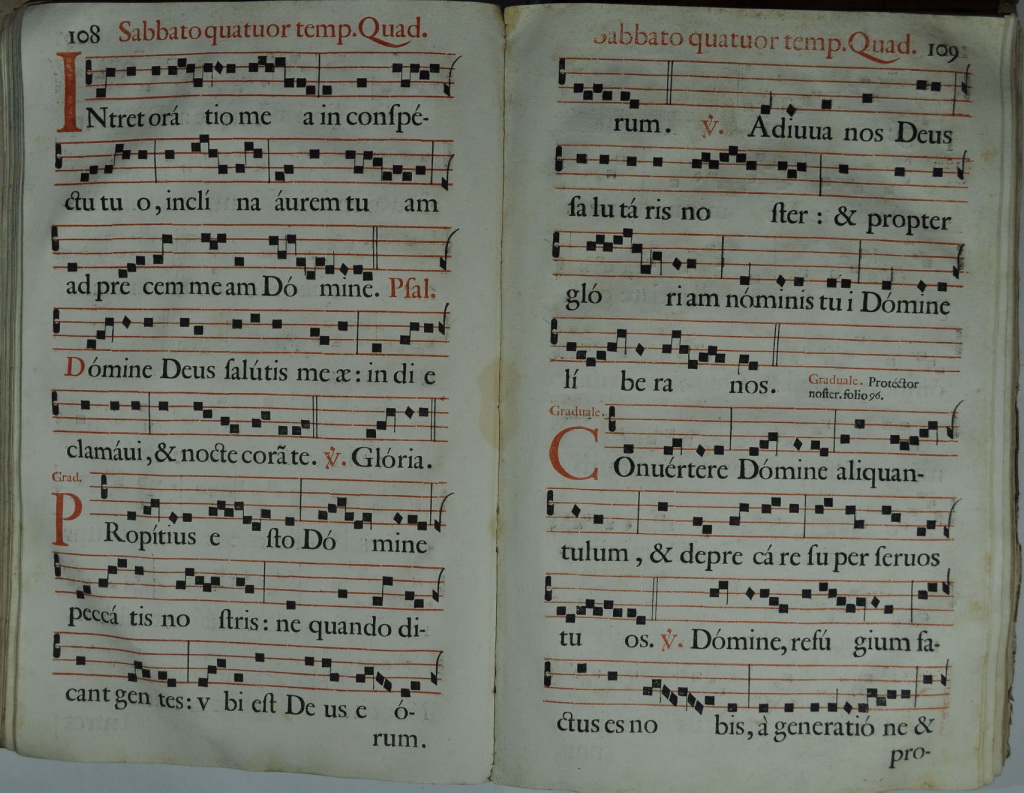 108 Sabbato quatuor temp. Quad.
INtret orá tio me a in conſpé-
ctu tu o, inclí na áurem tu am
ad pre cem me am Dó mine. Pſal.
Dómine Deus ſalútis me æ: in di e
clamáui, & nocte corã te. ℣. Glória.
Grad.
PRopítius e ſto Dó mine
peccá tis no ſtris: ne quando di-
cant gen tes: v bi eſt De us e ó-
rum.
Sabbato quatuor temp. Quad. 109
rum. ℣. Adiuua nos Deus
ſa lu tá ris no ſter: & propter
gló ri am nóminis tu i Dómine
lí be ra nos. Graduale. Protéctor
noſter. folio 96.
Graduale.
COnuértere Dómine aliquan-
tulum, & depre cá re ſu per ſeruos
tu os. ℣. Dómine, refú gium fa-
ctus es no bis, à generatió ne &
pro-